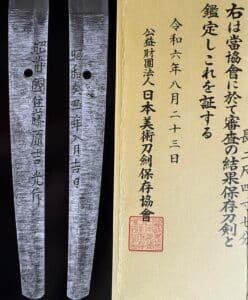 肥前國住藤原吉光作
昭和癸丑年八月吉日
長二尺四寸七分
右は當協會に於て審査の結果保存刀劍と
鑑定しこれを証する
令和六年八月二十三日
公益財團法人日本美術刀劍保存協會